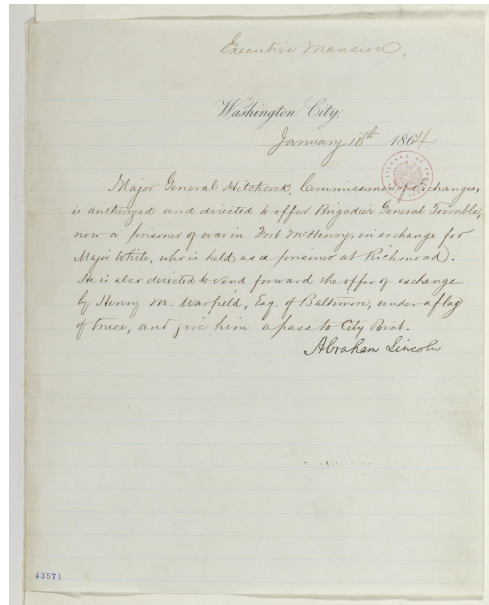 Executive Mansion,
Washington City,
January 10th 1864.
Major General Hitchcock, Commissioner of Exchanges,
is authorized and directed to offer Brigadier General Trimble,
now a prisoner of war in Fort McHenry, in exchange for
Major White, who is held as a prisoner at Richmond.
He is also directed to send forward the offer of exchange
by Henry M. Warfield, Esq. of Baltimore, under a flag
of truce, and give him a pass to City Point.
Abraham Lincoln
43571